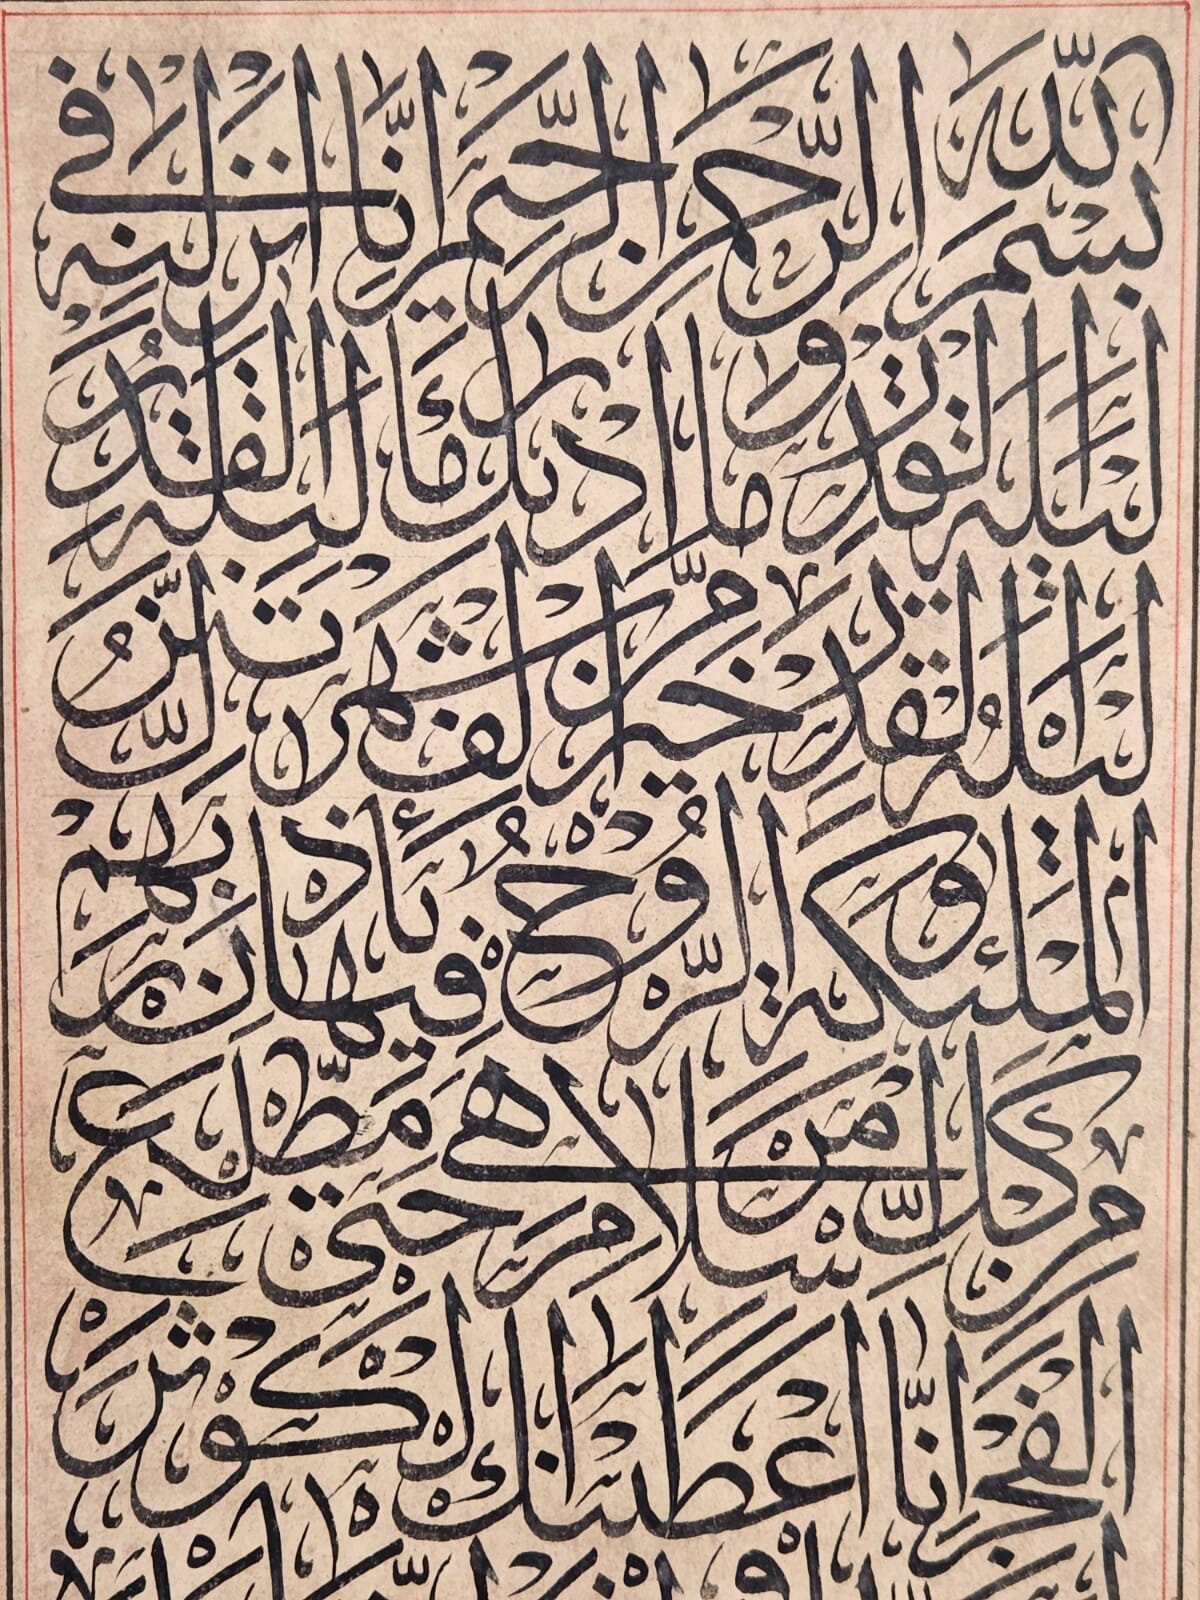 بسم الله الرحمن الرحيم إنا أنزلنه في
ليلة القدر وما أدرىك ما ليلة القدر
ليلة القدر خير من ألف شهر تنزل
الملئكة والروح فيها بإذن ربهم
من كل أمر سلام هي حتى مطلع
الفجر إنا أعطينك الكوثر